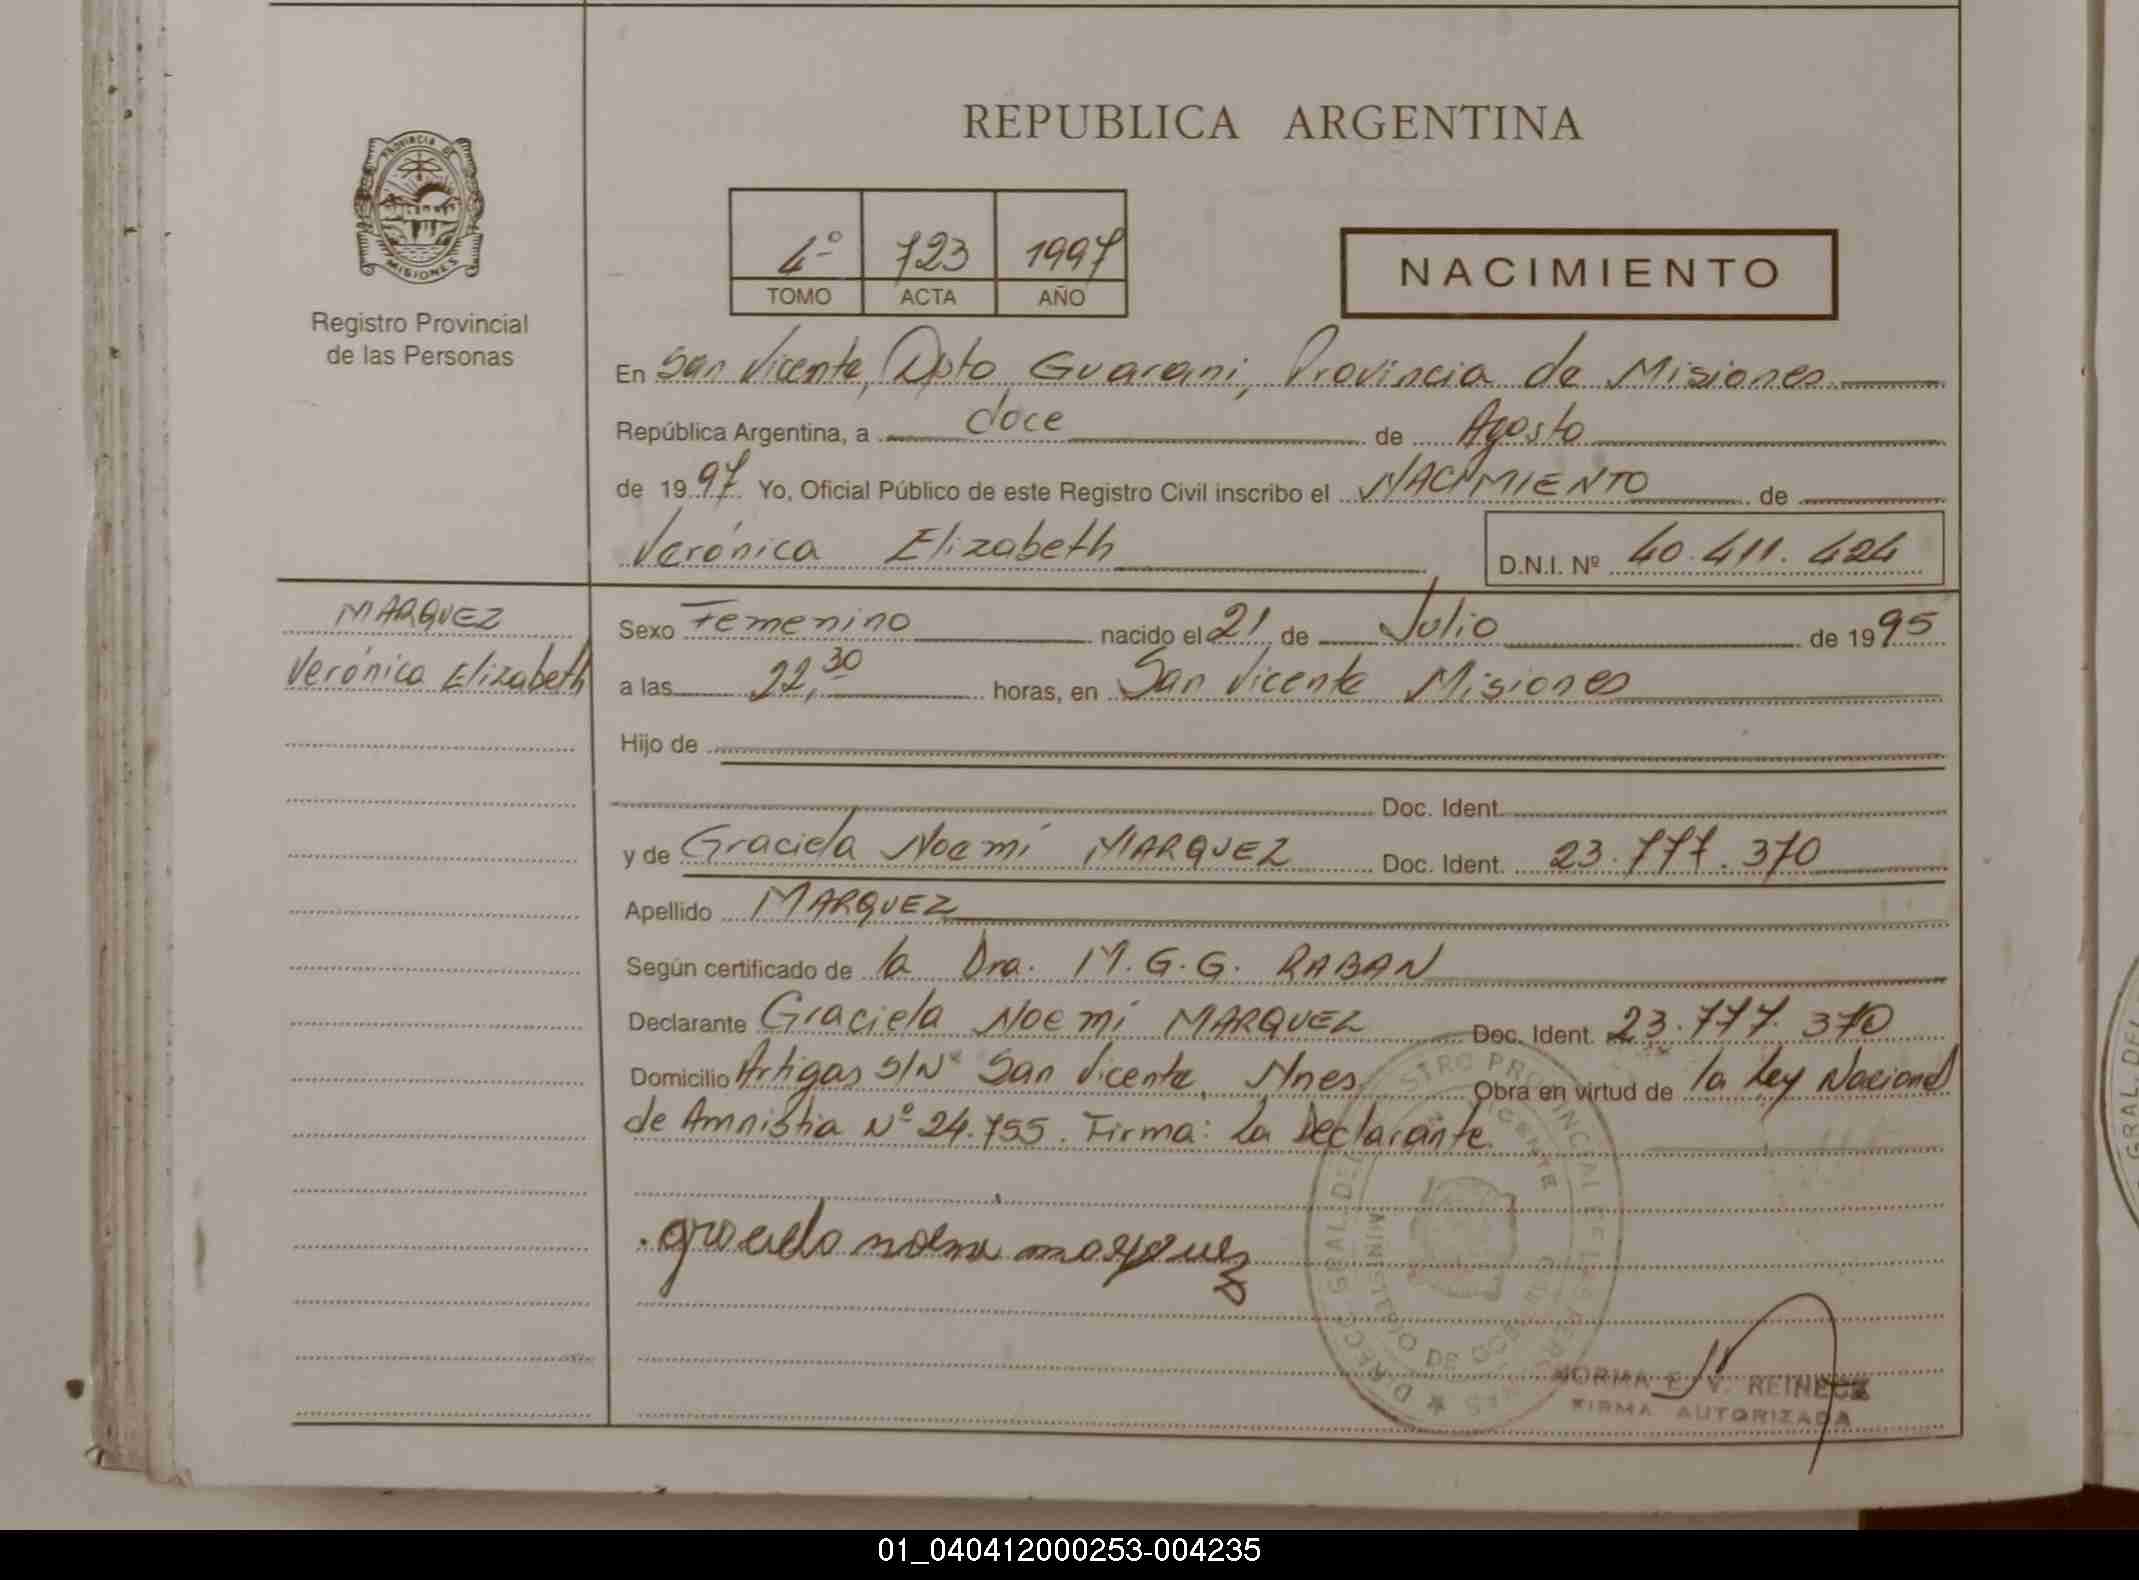 REPUBLICA ARGENTINA
PROVINCIA DE
MISIONES
Registro Provincial
de las Personas
4º 723 1997
TOMO ACTA AÑO
NACIMIENTO
En San Vicente, Dpto Guarani, Provincia de Misiones
República Argentina, a doce de Agosto
de 1997 Yo, Oficial Público de este Registro Civil inscribo el NACIMIENTO de
Verónica Elizabeth D.N.I. Nº 40.411.424
MARQUEZ
Verónica Elizabeth
Sexo Femenino nacido el 21 de Julio de 1995
a las 22,30 horas, en San Vicente Misiones
Hijo de
Doc. Ident.
y de Graciela Noemí MARQUEZ Doc. Ident. 23.777.370
Apellido MARQUEZ
Según certificado de la Dra. M.G.G. RABAN
Declarante Graciela Noemí MARQUEZ Doc. Ident. 23.777.370
Domicilio Artigas S/Nº San Vicente, Mnes. Obra en virtud de la Ley Nacional
de Amnistia Nº 24.755. Firma: La Declarante.
graciela noemi marquez
NORMA E. V. REINECK
FIRMA AUTORIZADA
01_040412000253-004235